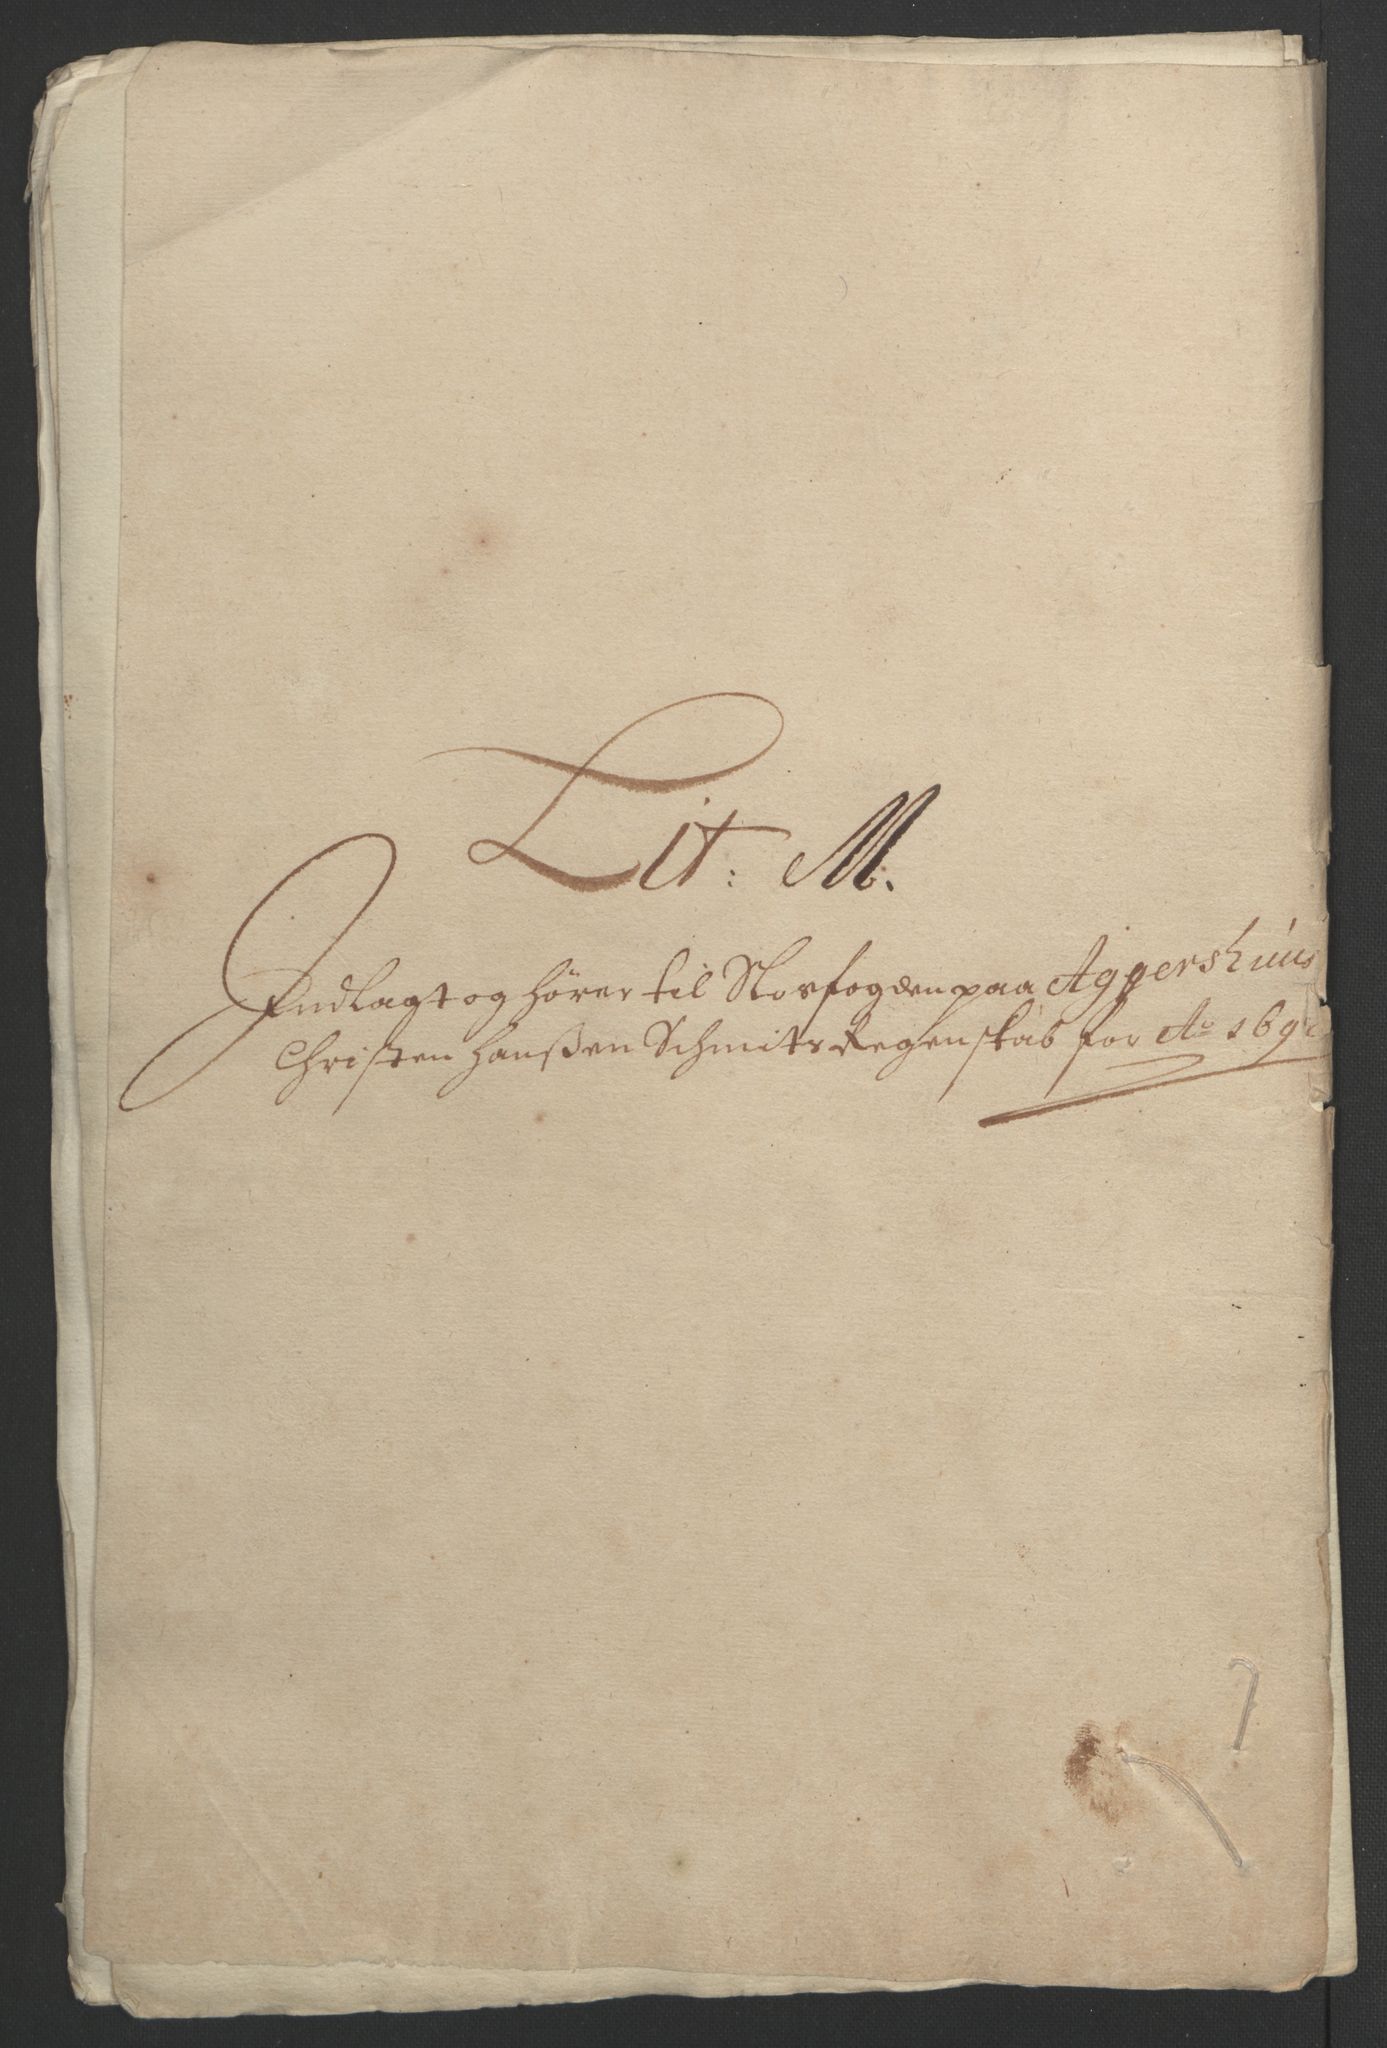 Lit: M.
Indlagt og hörer til Slosfogden paa Aggershuus
Christen Hanßen Schmits Regenskab for Ao 169